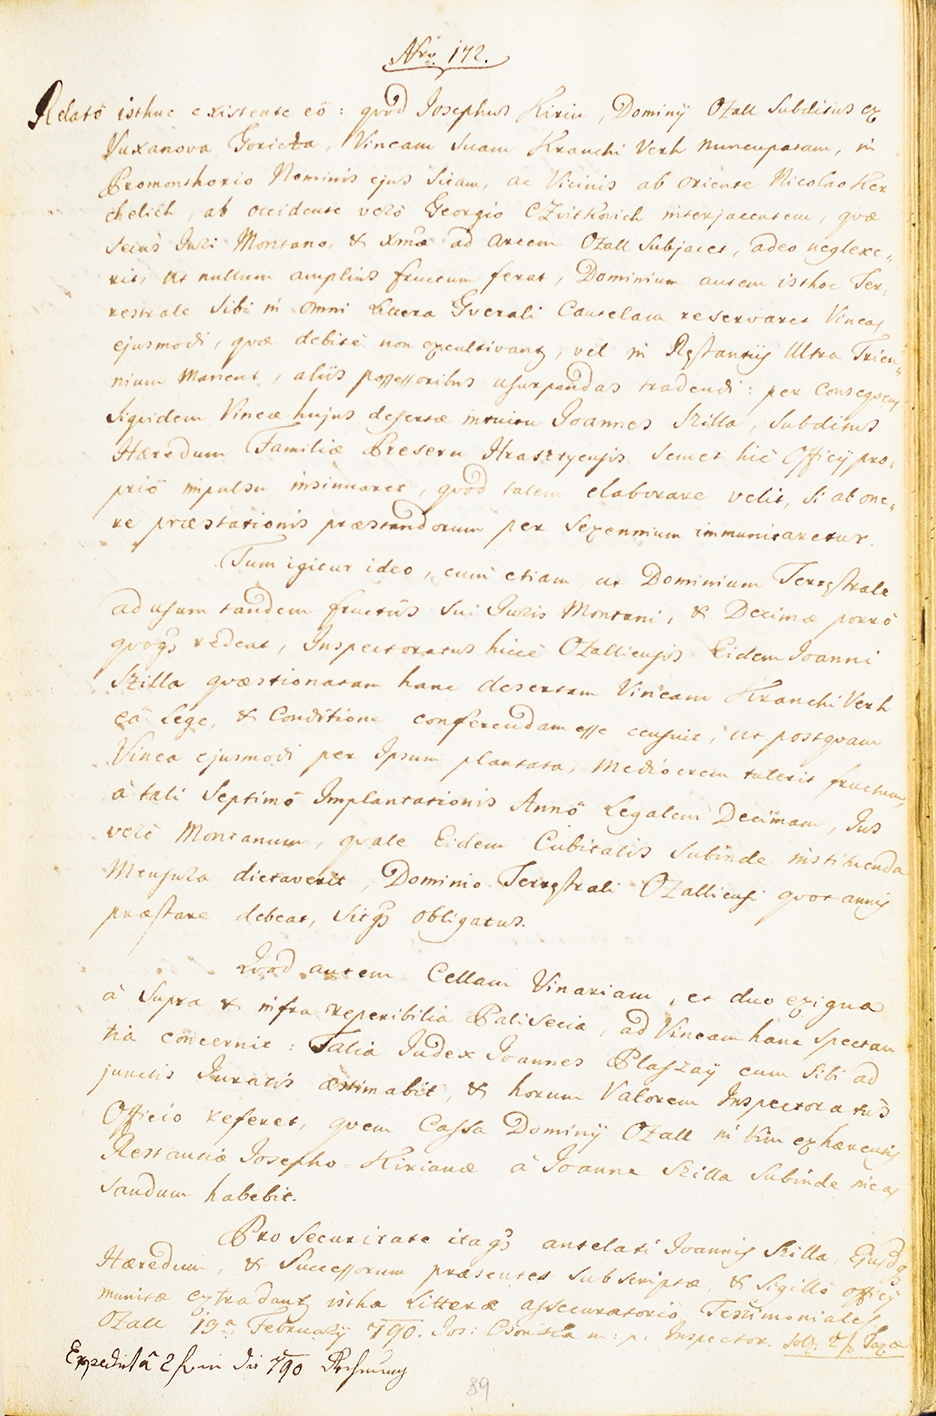 Nro 172.
Relatō isthuc existente eō: qvòd Josephus Kirin, Dominÿ Ozall Subditus ex
Vuxanova Goricza, Vineam Suam Kranchi Verh nuncupatam, in
Promonthorio Nominis ejus Sitam, ac Vicinis ab oriente Nicolao Ker
chelich, ab occidente verò Georgio CZvitkovich interjacentem, qvæ
Secus Juri Montano, & Xmæ ad Arcem Ozall Subjacet, adeo neglexe„
rit, ut nullum amplius fructum ferat, Dominium autem isthoc Ter„
restrale Sibi in omni Littera Gverali Cautelam reservaret Vineas
ejusmodi, qvæ debitè non excultivantz, vel in Restantijs Ultra Trien„
nium Manent, aliis possessoribus usurpandas tradendi: per conseqvens
Siqvidem Vineæ hujus desertæ intuitu Joannes Szilla, Subditus
Hæredum Familiæ Presern Hrasztyensis Semet hic Officÿ pro„
priō impulsu insinuaret, qvòd talem elaborare velit, Si ab one„
re præstationis præstandorum per Sexennium immunitaretur.
Tum igitur ideo, cum etiam ut Dominium Terrestrale
ad usum tandem fructûs Sui Juris Montani, & Decimæ porrò
qvoqs redeat, Inspectoratus hicce Ozalliensis Eidem Joanni
Szilla qvæstionatam hanc desertam Vineam Kranchi Verh
eâ Lege, & Conditione conferendam esse censuit, ut postqvam
Vinea ejusmodi per Ipsum plantata, Mediocrem tulerit fructum,
â tali Septimō Implantationis Annō Legalem Decimam, Jus
verò Montanum, qvale Eidem Cubitalis Subinde instituenda
Mensura dictaverit, Dominio Terrestrali Ozalliensi qvot annis
præstare debeat, Sitqs obligatus.
Qvod autem Cellam Vinariam, et duo exigua
â Supra & infra reperibilia Palisecia, ad Vineam hanc Spectan
tia concernit: Talia Judex Joannes Plaszaÿ cum Sibi ad
junctis Juratis æstimabit, & horum Valorem Inspectoratûs
Officio referet, qvem Cassa Dominÿ Ozall in Vim exhærentis
Restantiæ Josepho Kirianæ â Joanne Szilla Subinde incas
sandum habebit.
Pro Securitate itaqs antelati Joannis Szilla, Ejusdqs
Hæredum, & Successorum præsentes Subscriptæ, & Sigillō officÿ
munitæ extradantz istha Litteræ assecuratoriō Testimoniales
Ozall 13a Februarÿ 790. Jos: m: p: Inspector. Solv: 2 f Taxæ
Expedit â 2 f in die 790 Rechnung
89